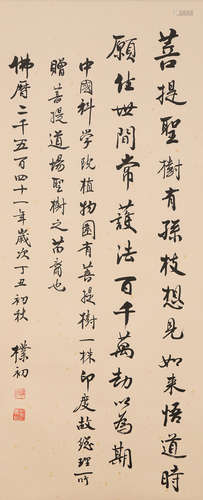 菩提聖樹有孫枝想見如来悟道時
願住世間常護法百千萬劫以為期
中國科学院植物園有菩提樹一株印度故総理所
贈菩提道場聖樹之苗裔也
佛曆二千五百四十一年歲次丁丑初秋 樸初